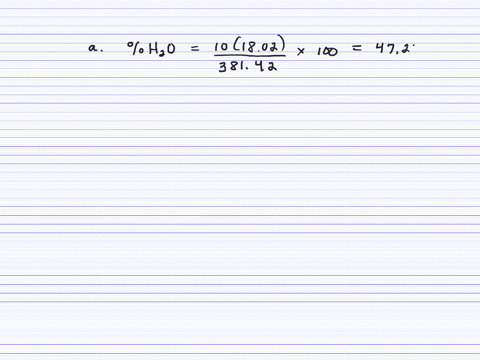 a. % H₂O = 10(18.02) / 381.42 × 100 = 47.2